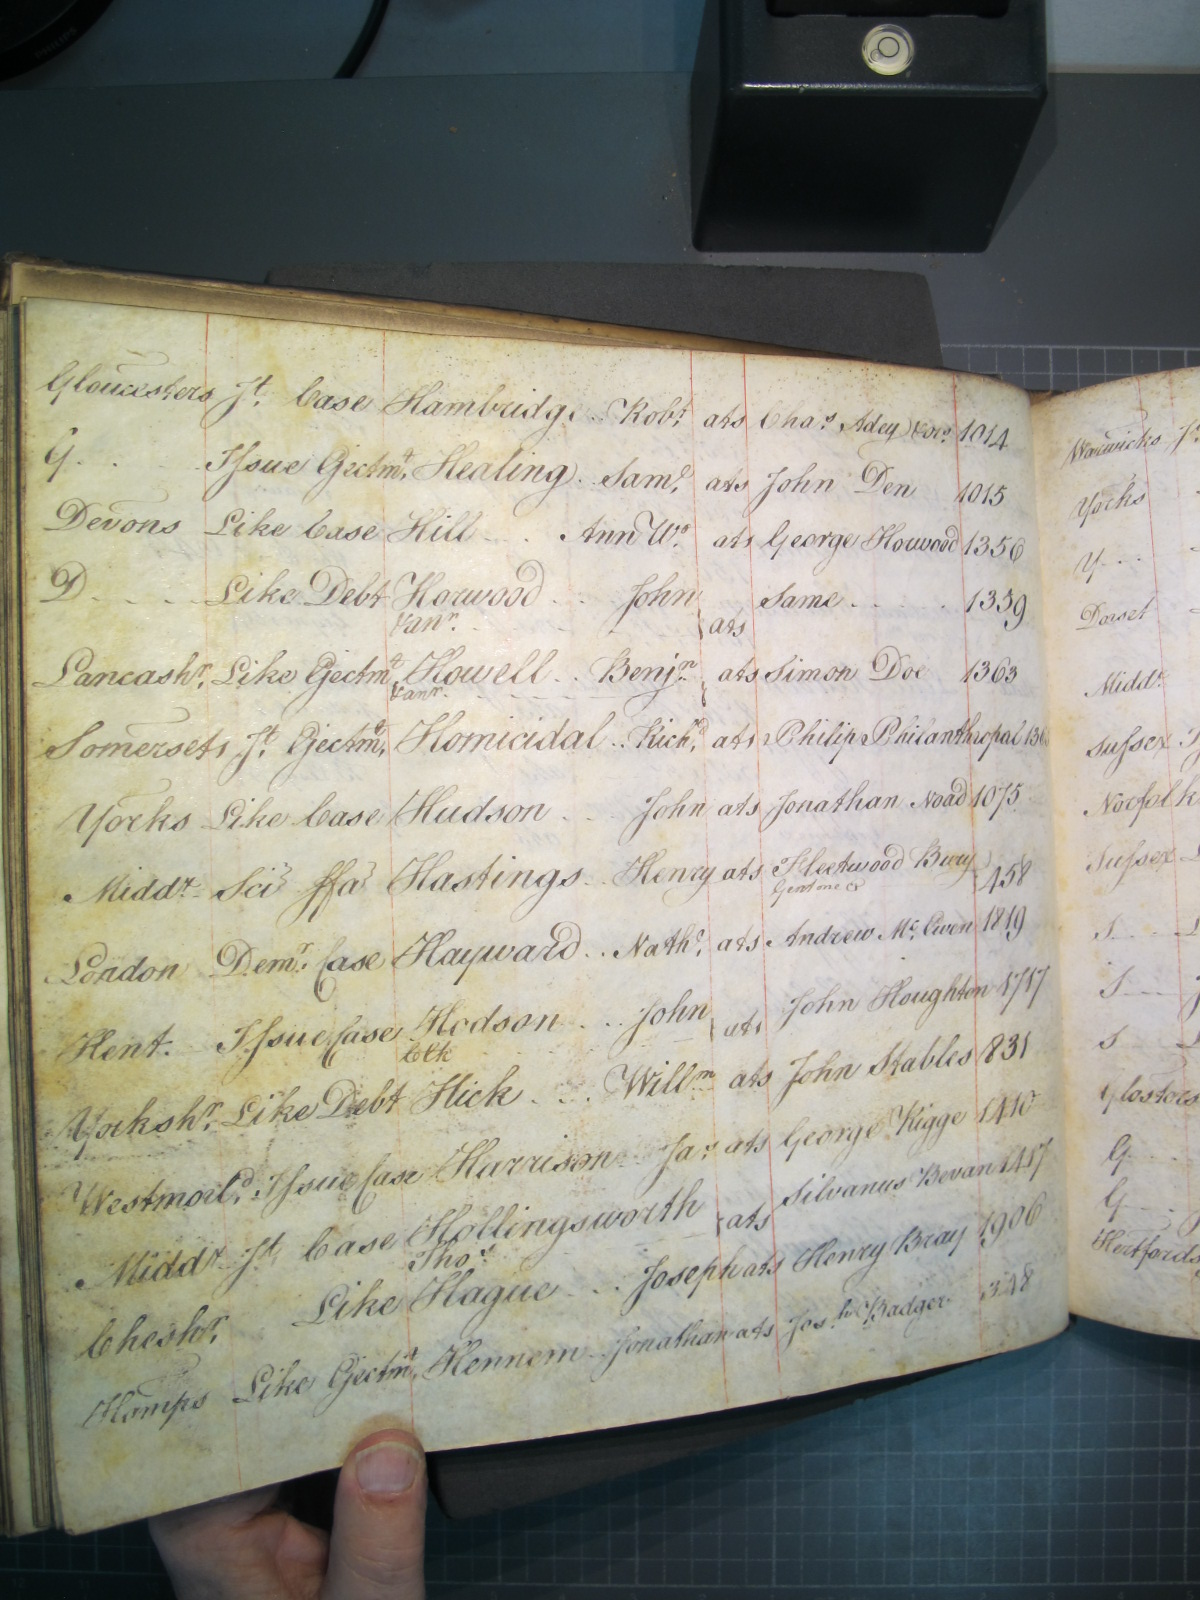 Gloucesters Jt. Case Hambridge .. Robt ats Chas Adey 1014
G. . . Issue Ejectmt. Healing. Saml. ats John Den 1015
Devons Like Case Hill .... Ann Ws. ats George Howood 1356
D. . . . Like Debt Horwood ... John Same . . . . . 1339
vanr. . ats
Lancashr. Like Ejectmt Howell .. Benjn ats Simon Doe 1363
vanr.
Somersets Jt. Ejectmt. Homicidal .. Richd ats Philip Philanthropal
Yorks Like Case Hudson ... John ats Jonathan Noad 1075
Middx Sci ffa Hastings .. Henry ats Fleetwood Bury 458
London Demr. Case Hayward .. Nathl. ats Andrew Mc. Ewen 1819
Kent. Issue Case Hodson ... John ats John Houghton 1717
Clk
Yorkshr. Like Debt Hick .... Willm ats John Stables 831
Westmorld. Issue Case Harrison .. Jas ats George Rigge 1410
Middx Jt Case Hollingsworth ats Silvanus Bevan 1417
Thos
Cheshr. Like Hague .... Joseph ats Henry Bray 1906
Hamps Like Ejectmt. Hennem .. Jonathan ats Josh. Badger 348
Warwicks
Yorks
Y...
Dorset
Middx
Sussex
Norfolk
Sussex
S
S
S
Glosters
G
G
Hertfords